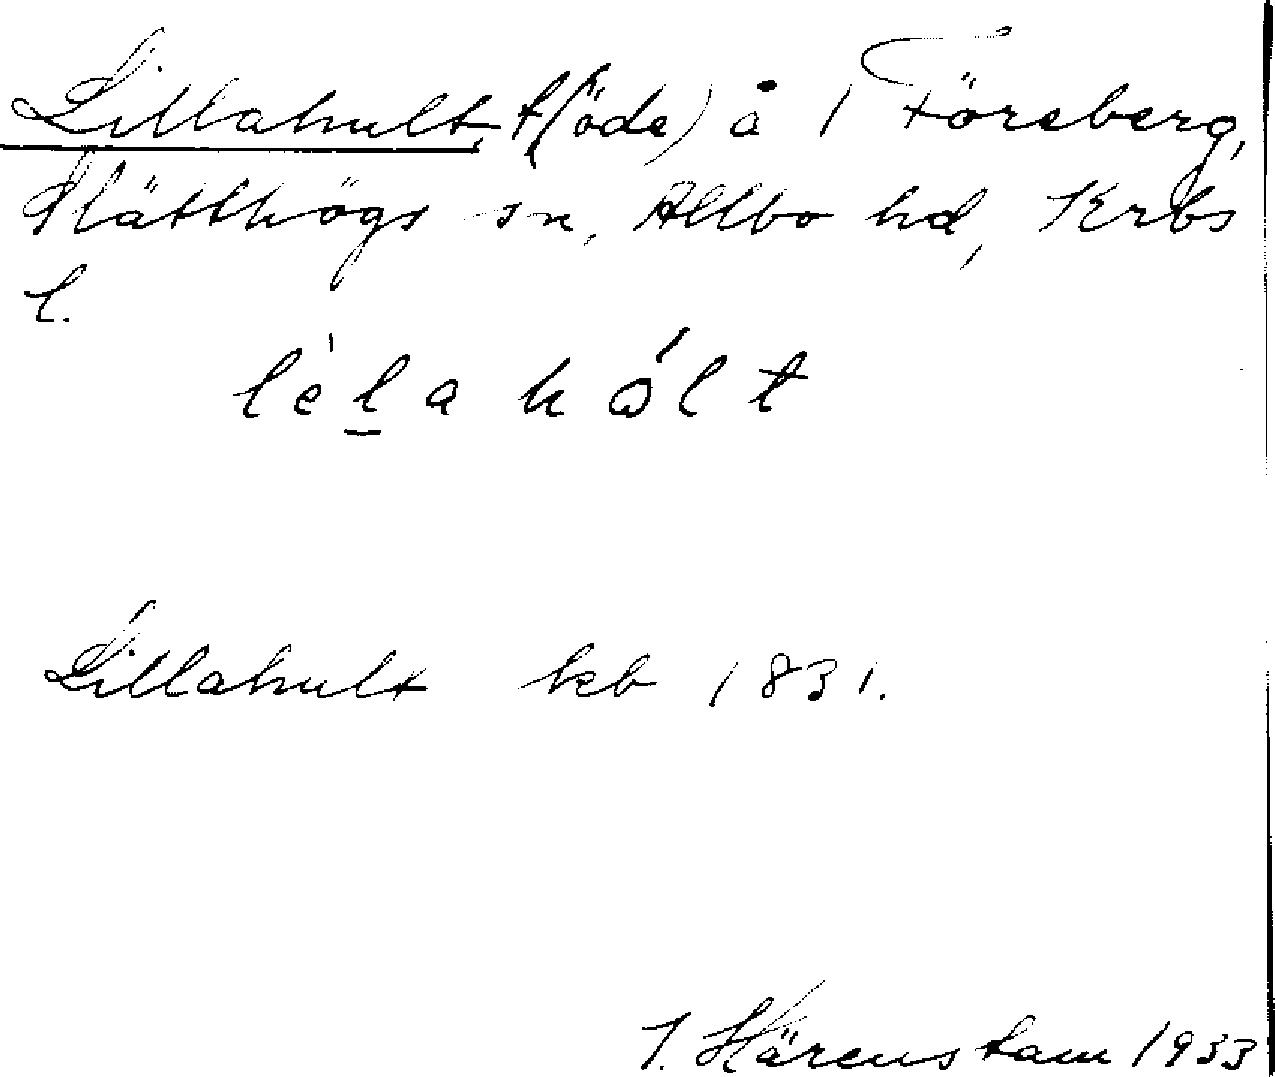 Lillahult, t (öde) å 1 Föreberg,
Slätthögs sn, Allbo hd, Krbs
l.
lèla hólt
Lillahult kb 1831.
J. Härenstam 1933